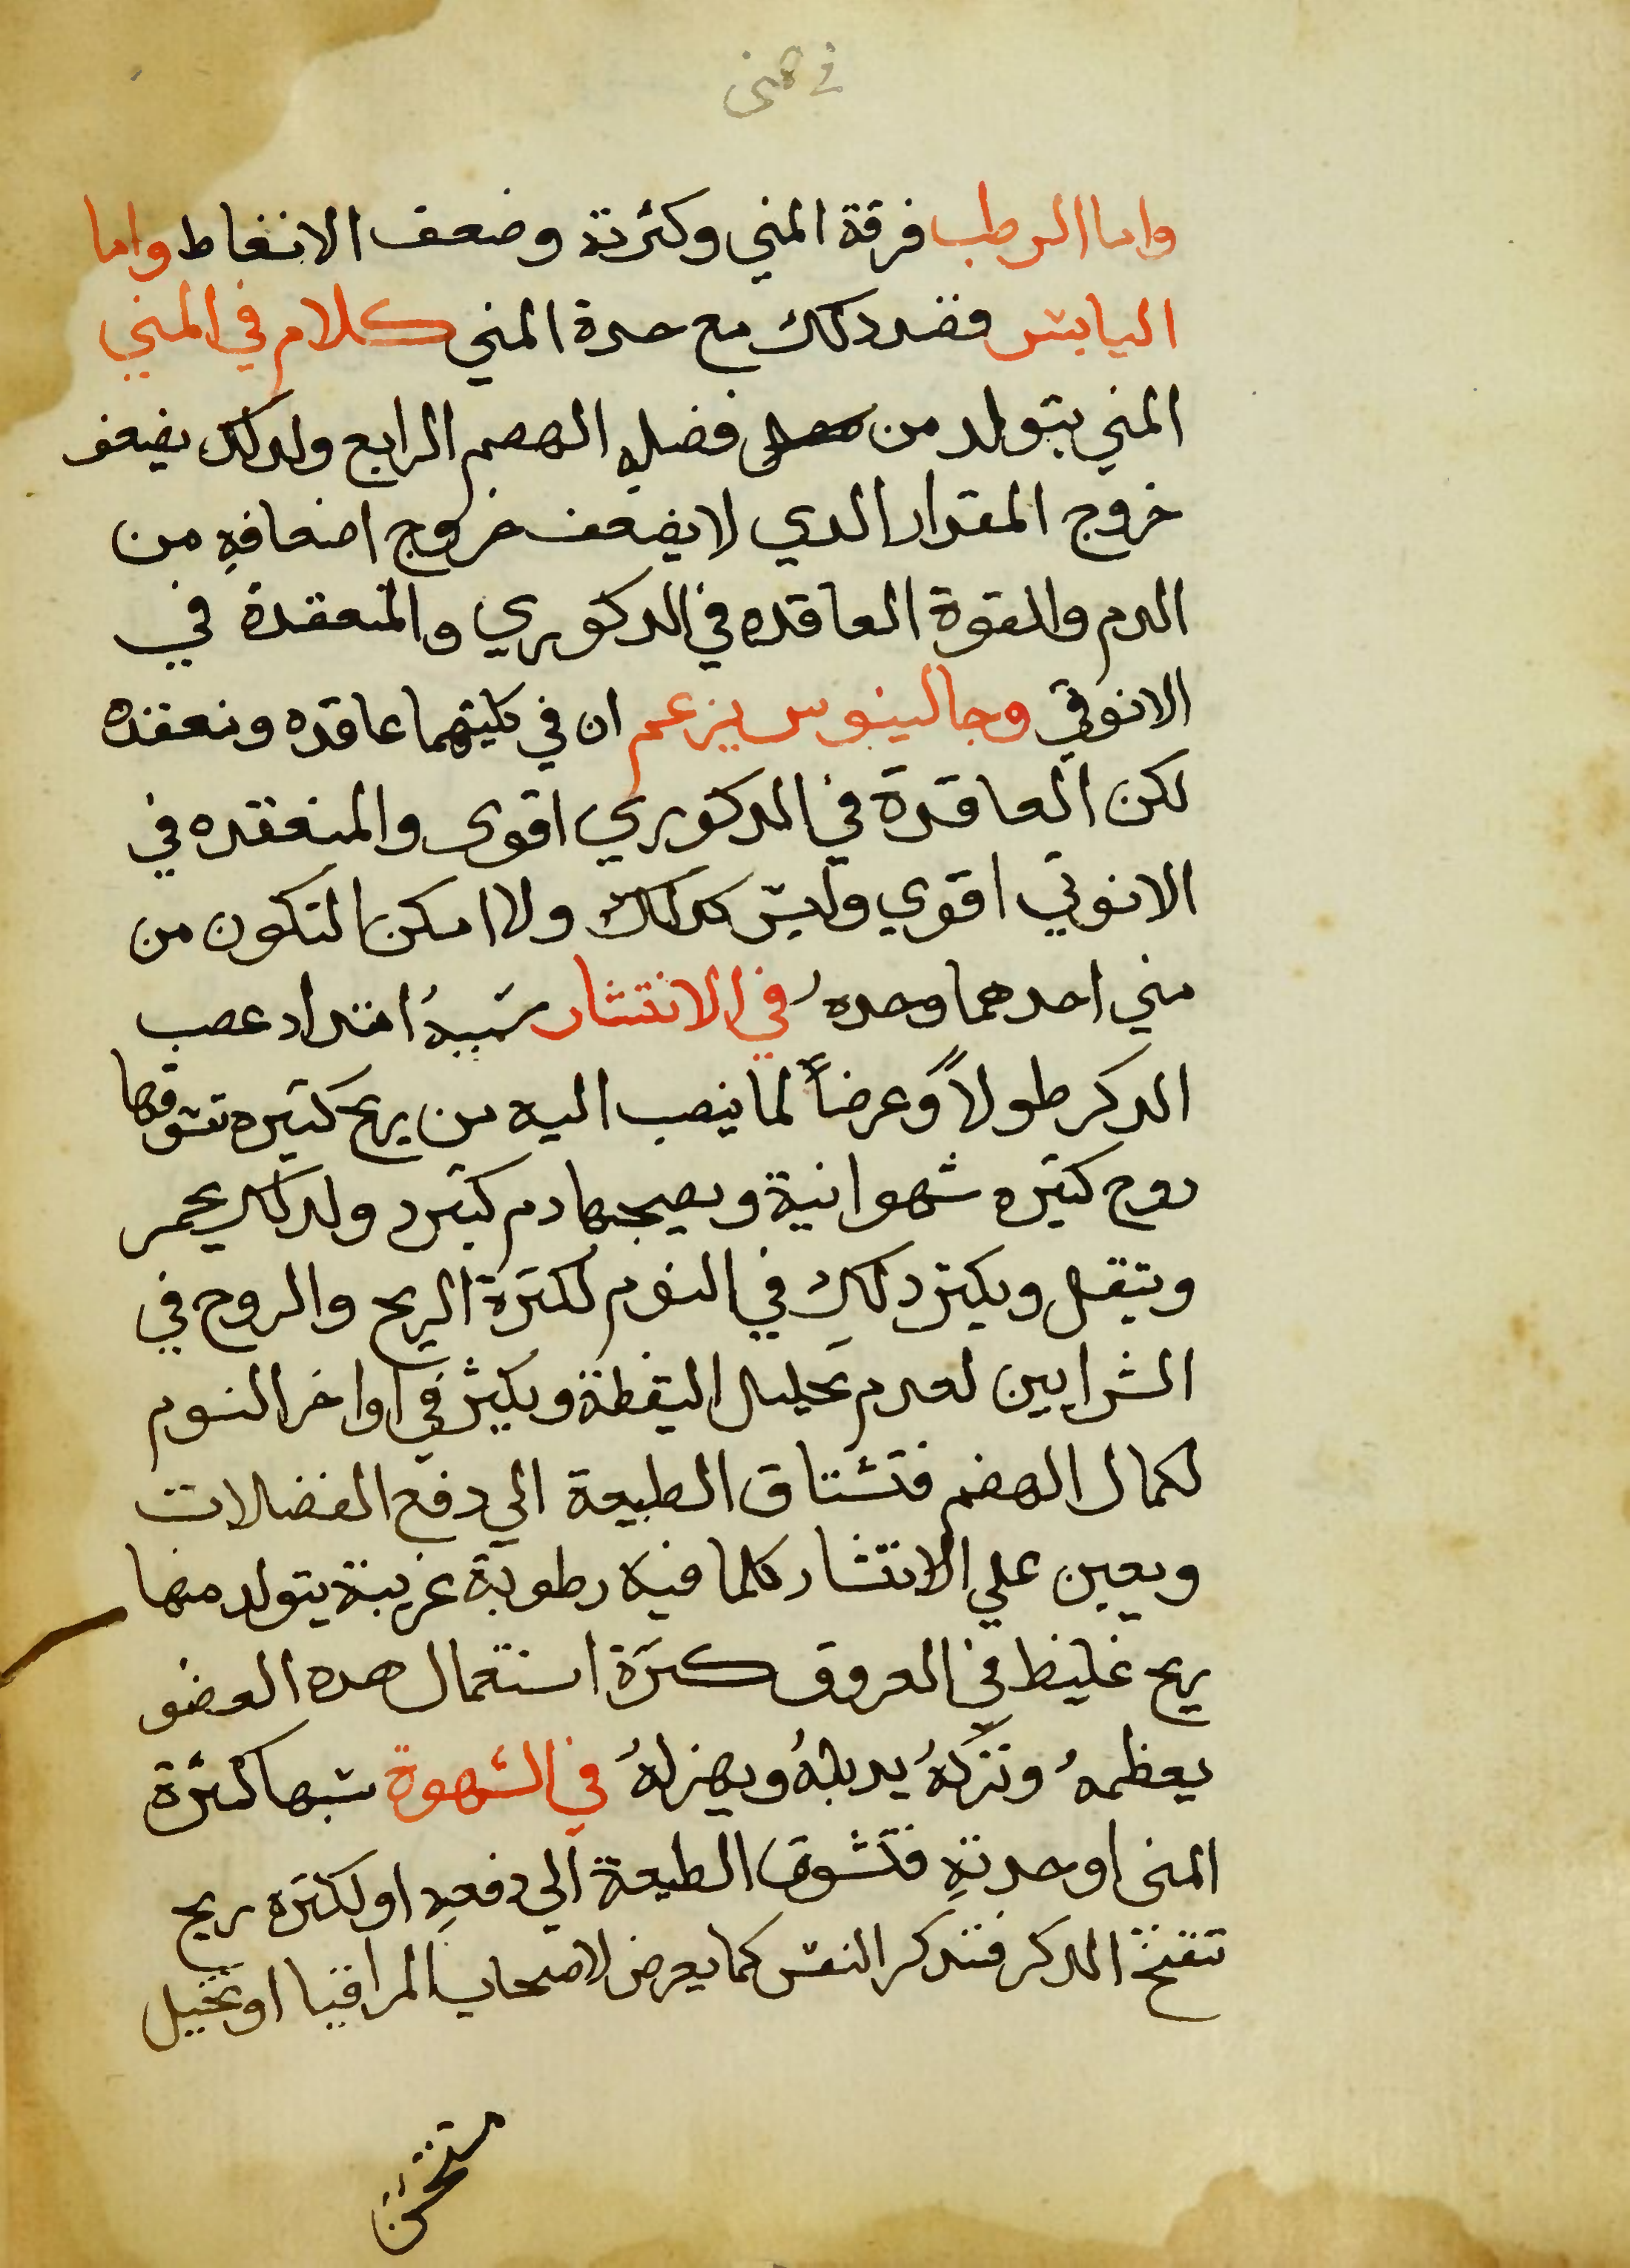 في المني
واما الرطب فرقة المني وكثرتة وضعف الانغاط واما
اليابس فضد دلك مع حدة المني كلام في المني
المني يتولد من فضلهِ الهضم الرابع ولدلك يضعف
خروج المقدار الدي لا يضعف خروج اضعافهِ من
الدم والقوة العاقده في الدكوري والمنعقدة في
الانوتي وجالينوس يزعم ان في كليتهما عاقده ونعقده
لكن العاقدة في الدكوري اقوى والمنعقده في
الانوتي اقوي وليس كدلك ولا امكن التكون من
مني احدهما وحدهُ في الانتشار سببهُ امتداد عصب
الدكر طولاً وعرضاً لما ينصب اليه من ريح كتيره تسوقها
روح كتيره شهوانية ويصحبها دم كتير ولدلك يحمر
ويتقل ويكتر دلك في النوم لكترة الريح والروح في
الشرايين لعدم تحليل اليقظة ويكثر في اواخر النوم
لكمال الهضم فتشتاق الطبيعة الي دفع الفضلات
ويعين علي الانتشار كلما فيه رطوبة غريبة يتولد منها
ريح غليظ في العروق كترة استعمال هده العضو
يعظمهُ وتركهُ يدبلهُ ويهزلهُ في الشهوة سببها كثرة
المنى او حدتهِ فتشوق الطبيعة الي دفعهِ او لكتره ريح
تنفخ الدكر فتتدكر النفس كما يعرض لاصحاب المراقيا او تخيل